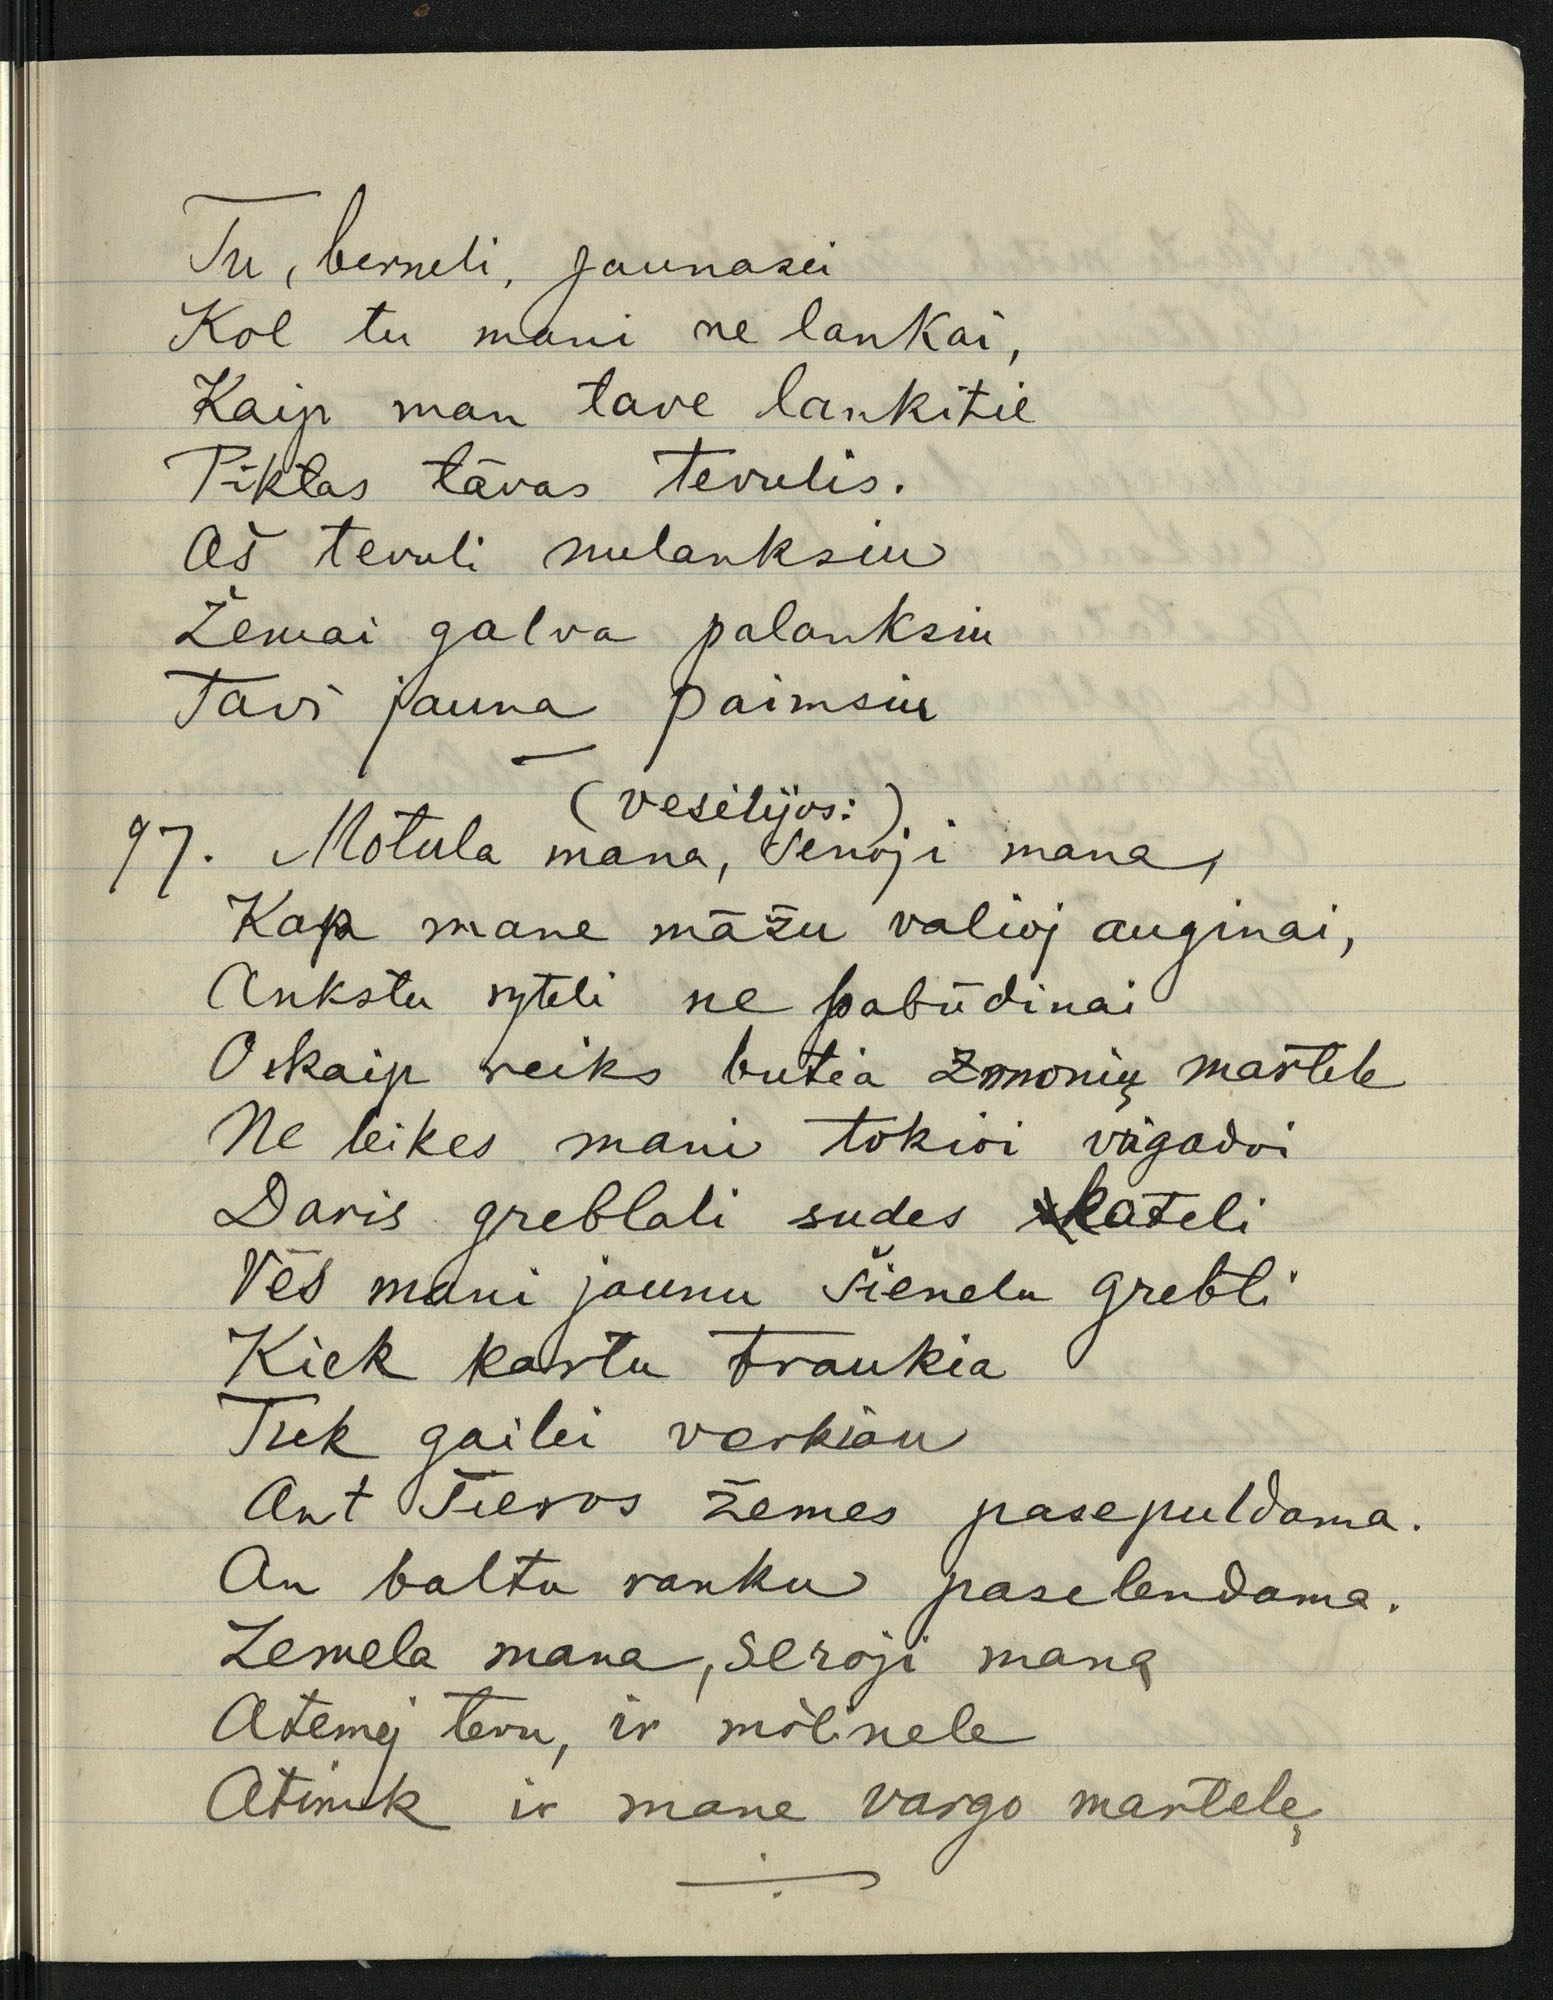 Tu, berneli, jaunasei
Kol tu mani ne lankai,
Kaip man tave lankitie
Piktas tāvas tevulis.
Aš tevuli nulanksiu
Žemai galva palanksiu
Tavi jauna paimsiu
(vesėlijos:)
97. Motula mana, senoji mana,
Kap mane māžu valioj auginai,
Ankstu ryteli ne pabūdinai
O kaip reiks butia žmonių martele
Ne leikes mani tokioi vigadoi
Daris greblali sudes kateli
Vės mani jaunu šienelu grebti
Kiek kartu traukia
Tiek gailei verkiau
Ant sieros žemes pasepuldama.
An baltu ranku paselendama.
Žemela mana, seroji mana
Atemej tevu, ir močinele
Atimk ir mane vargo martelę